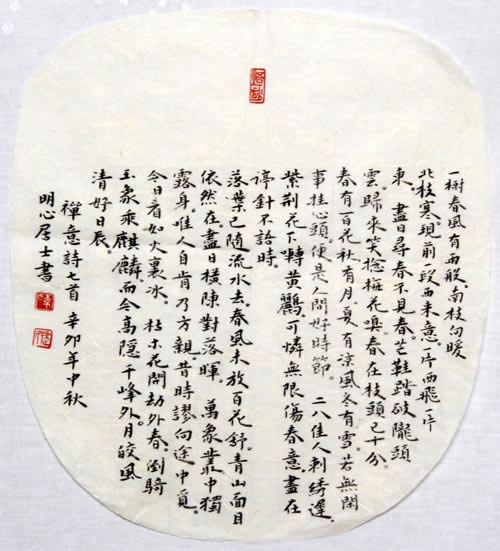 一樹春風有兩般。南枝向暖
北枝寒。現前一段西來意。一片西飛一片
東。盡日尋春不見春。芒鞋踏破隴頭
雲。歸來笑撚梅花嗅。春在枝頭已十分。
春有百花秋有月。夏有涼風冬有雪。若無閑
事挂心頭。便是人間好時節。二八佳人刺綉遲。
紫荆花下囀黃鸝。可憐無限傷春意。盡在
停針不語時。
落葉已隨流水去。春風未放百花舒。青山面目
依然在。盡日橫陳對落暉。萬象叢中獨
露身。唯人自肯乃方親。昔時謬向途中覓。
今日看如火裏冰。枯木花開劫外春。倒騎
玉象乘麒麟。而今高隱千峰外。月皎風
清好日辰。
禪意詩七首 辛卯年中秋
明心居士書